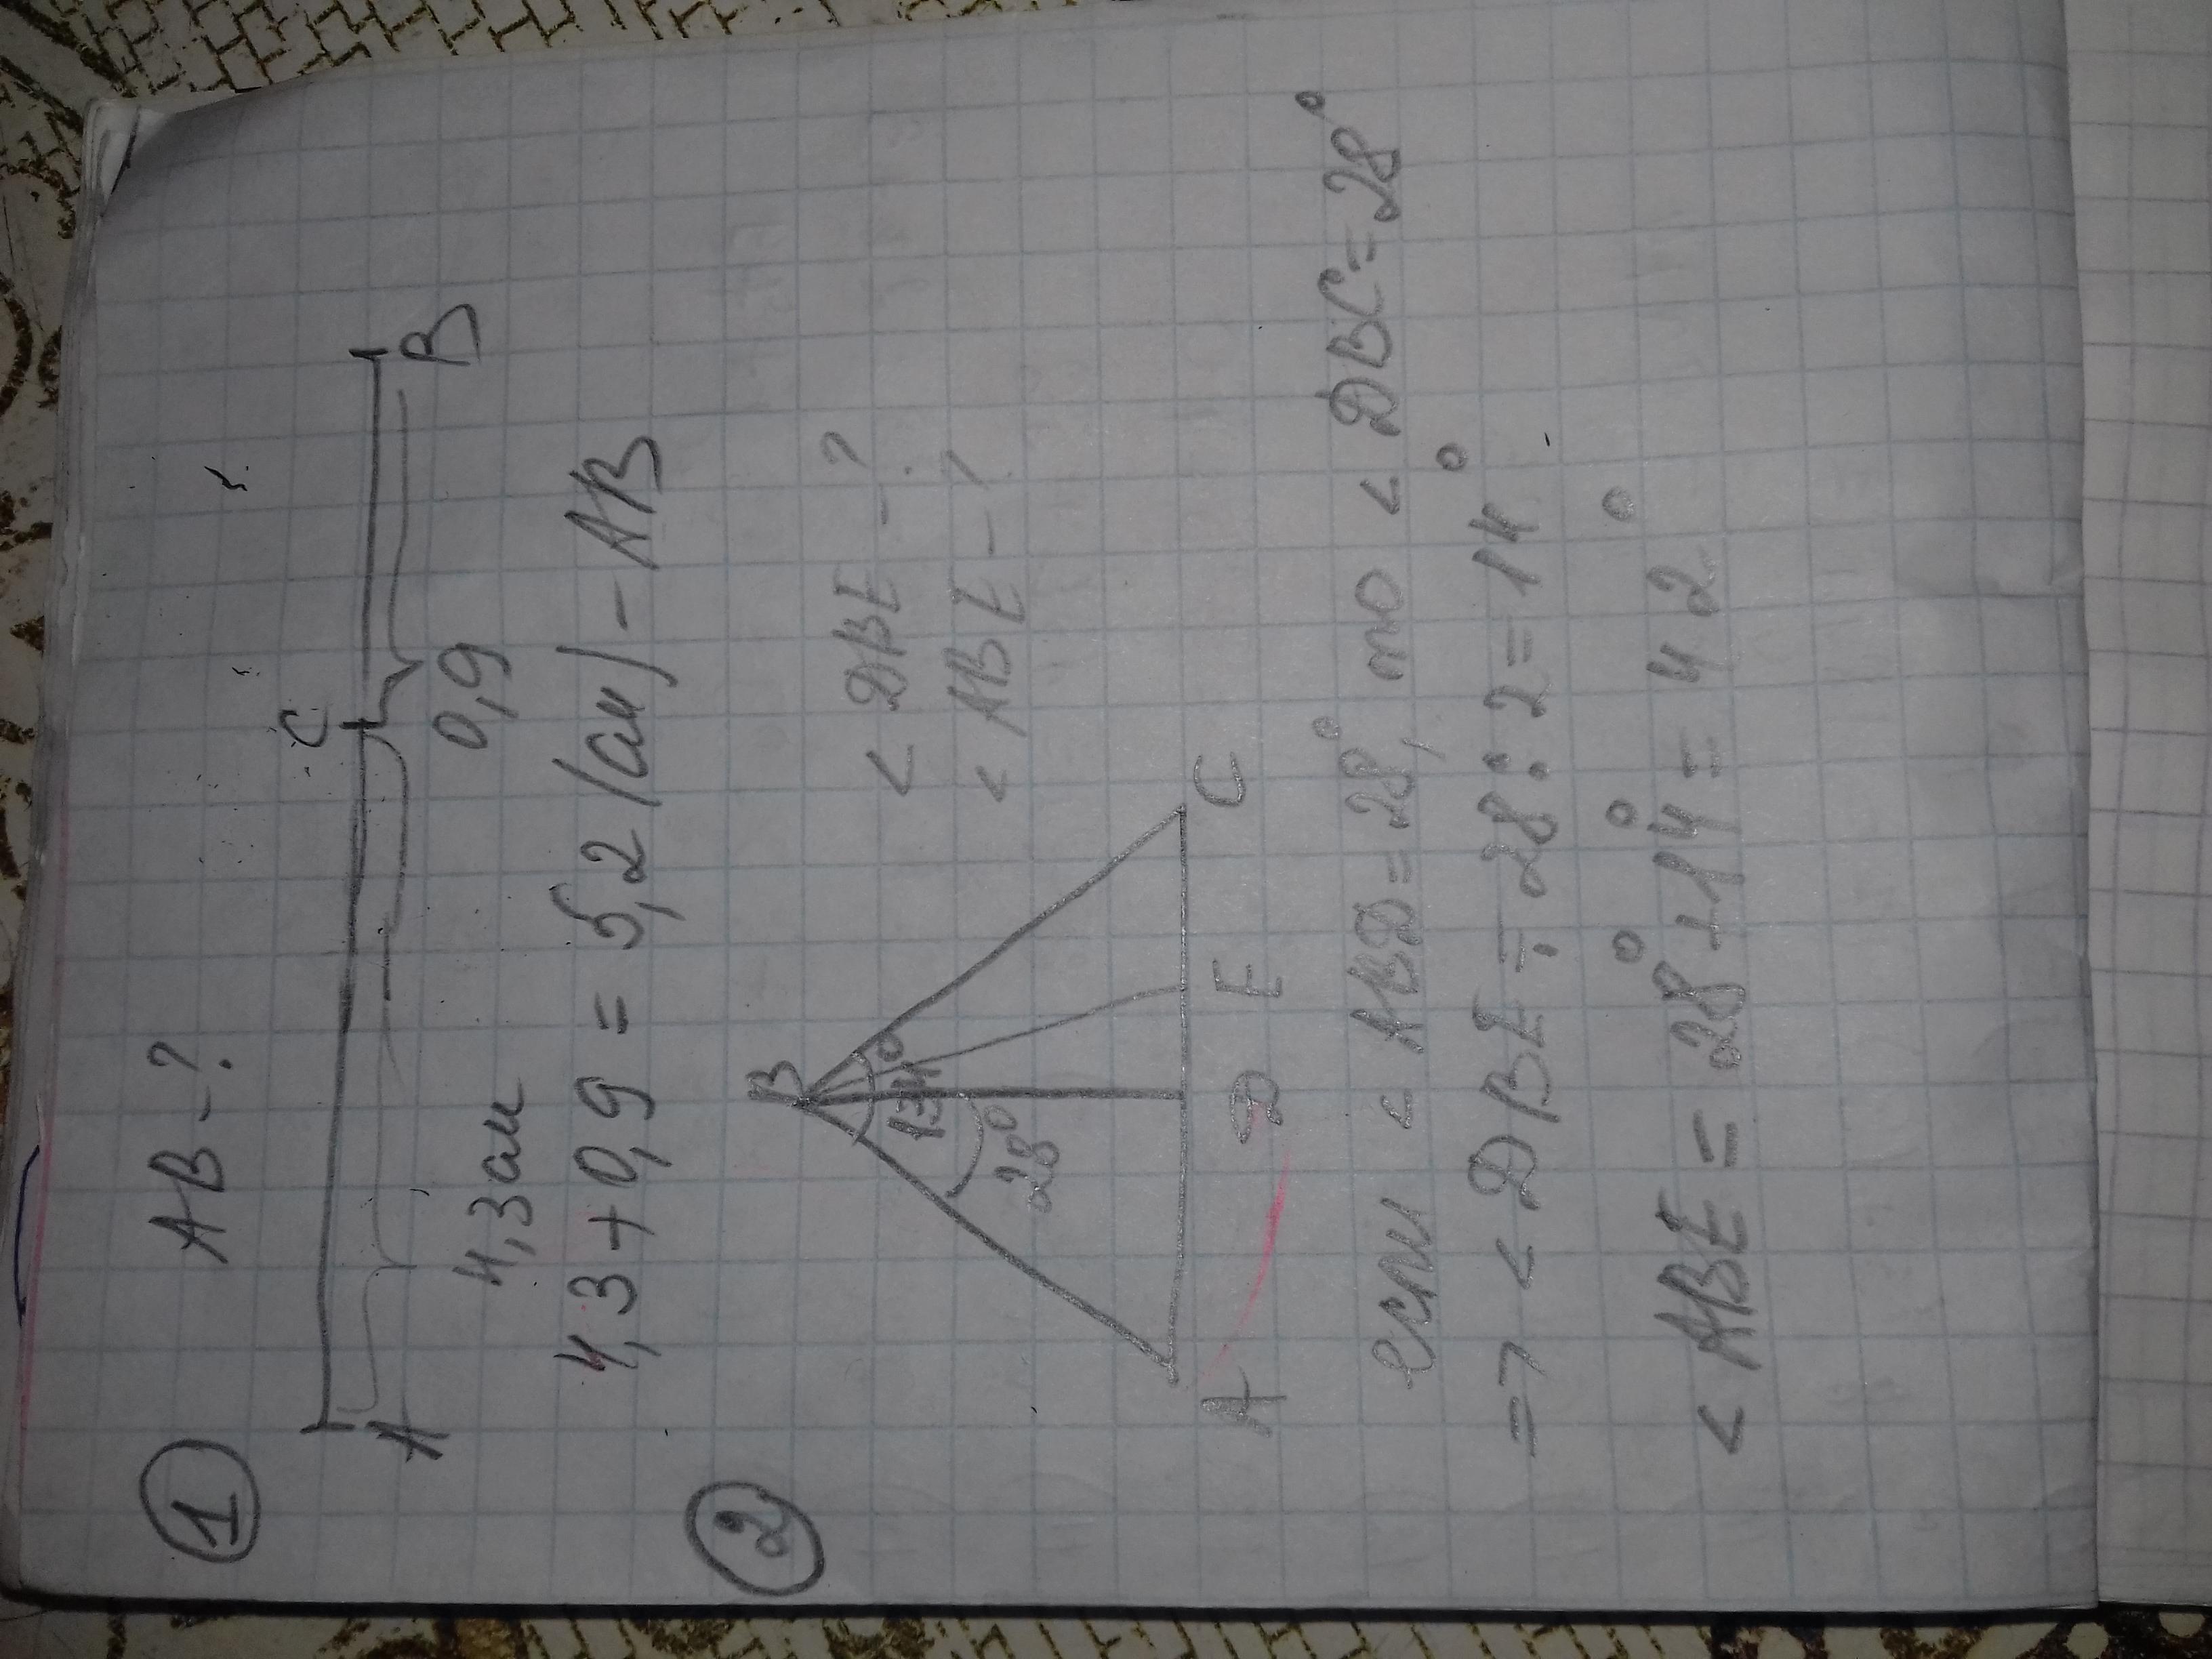 1
AB - ?
C
A
B
4,3 см
0,9
4,3 + 0,9 = 5,2 (см) - AB
2
B
< DBE - ?
< ABE - ?
28°
A
D
E
C
если < ABD = 28°, то < DBC = 28°
=> < DBE = 28 : 2 = 14°
< ABE = 28° + 14° = 42°